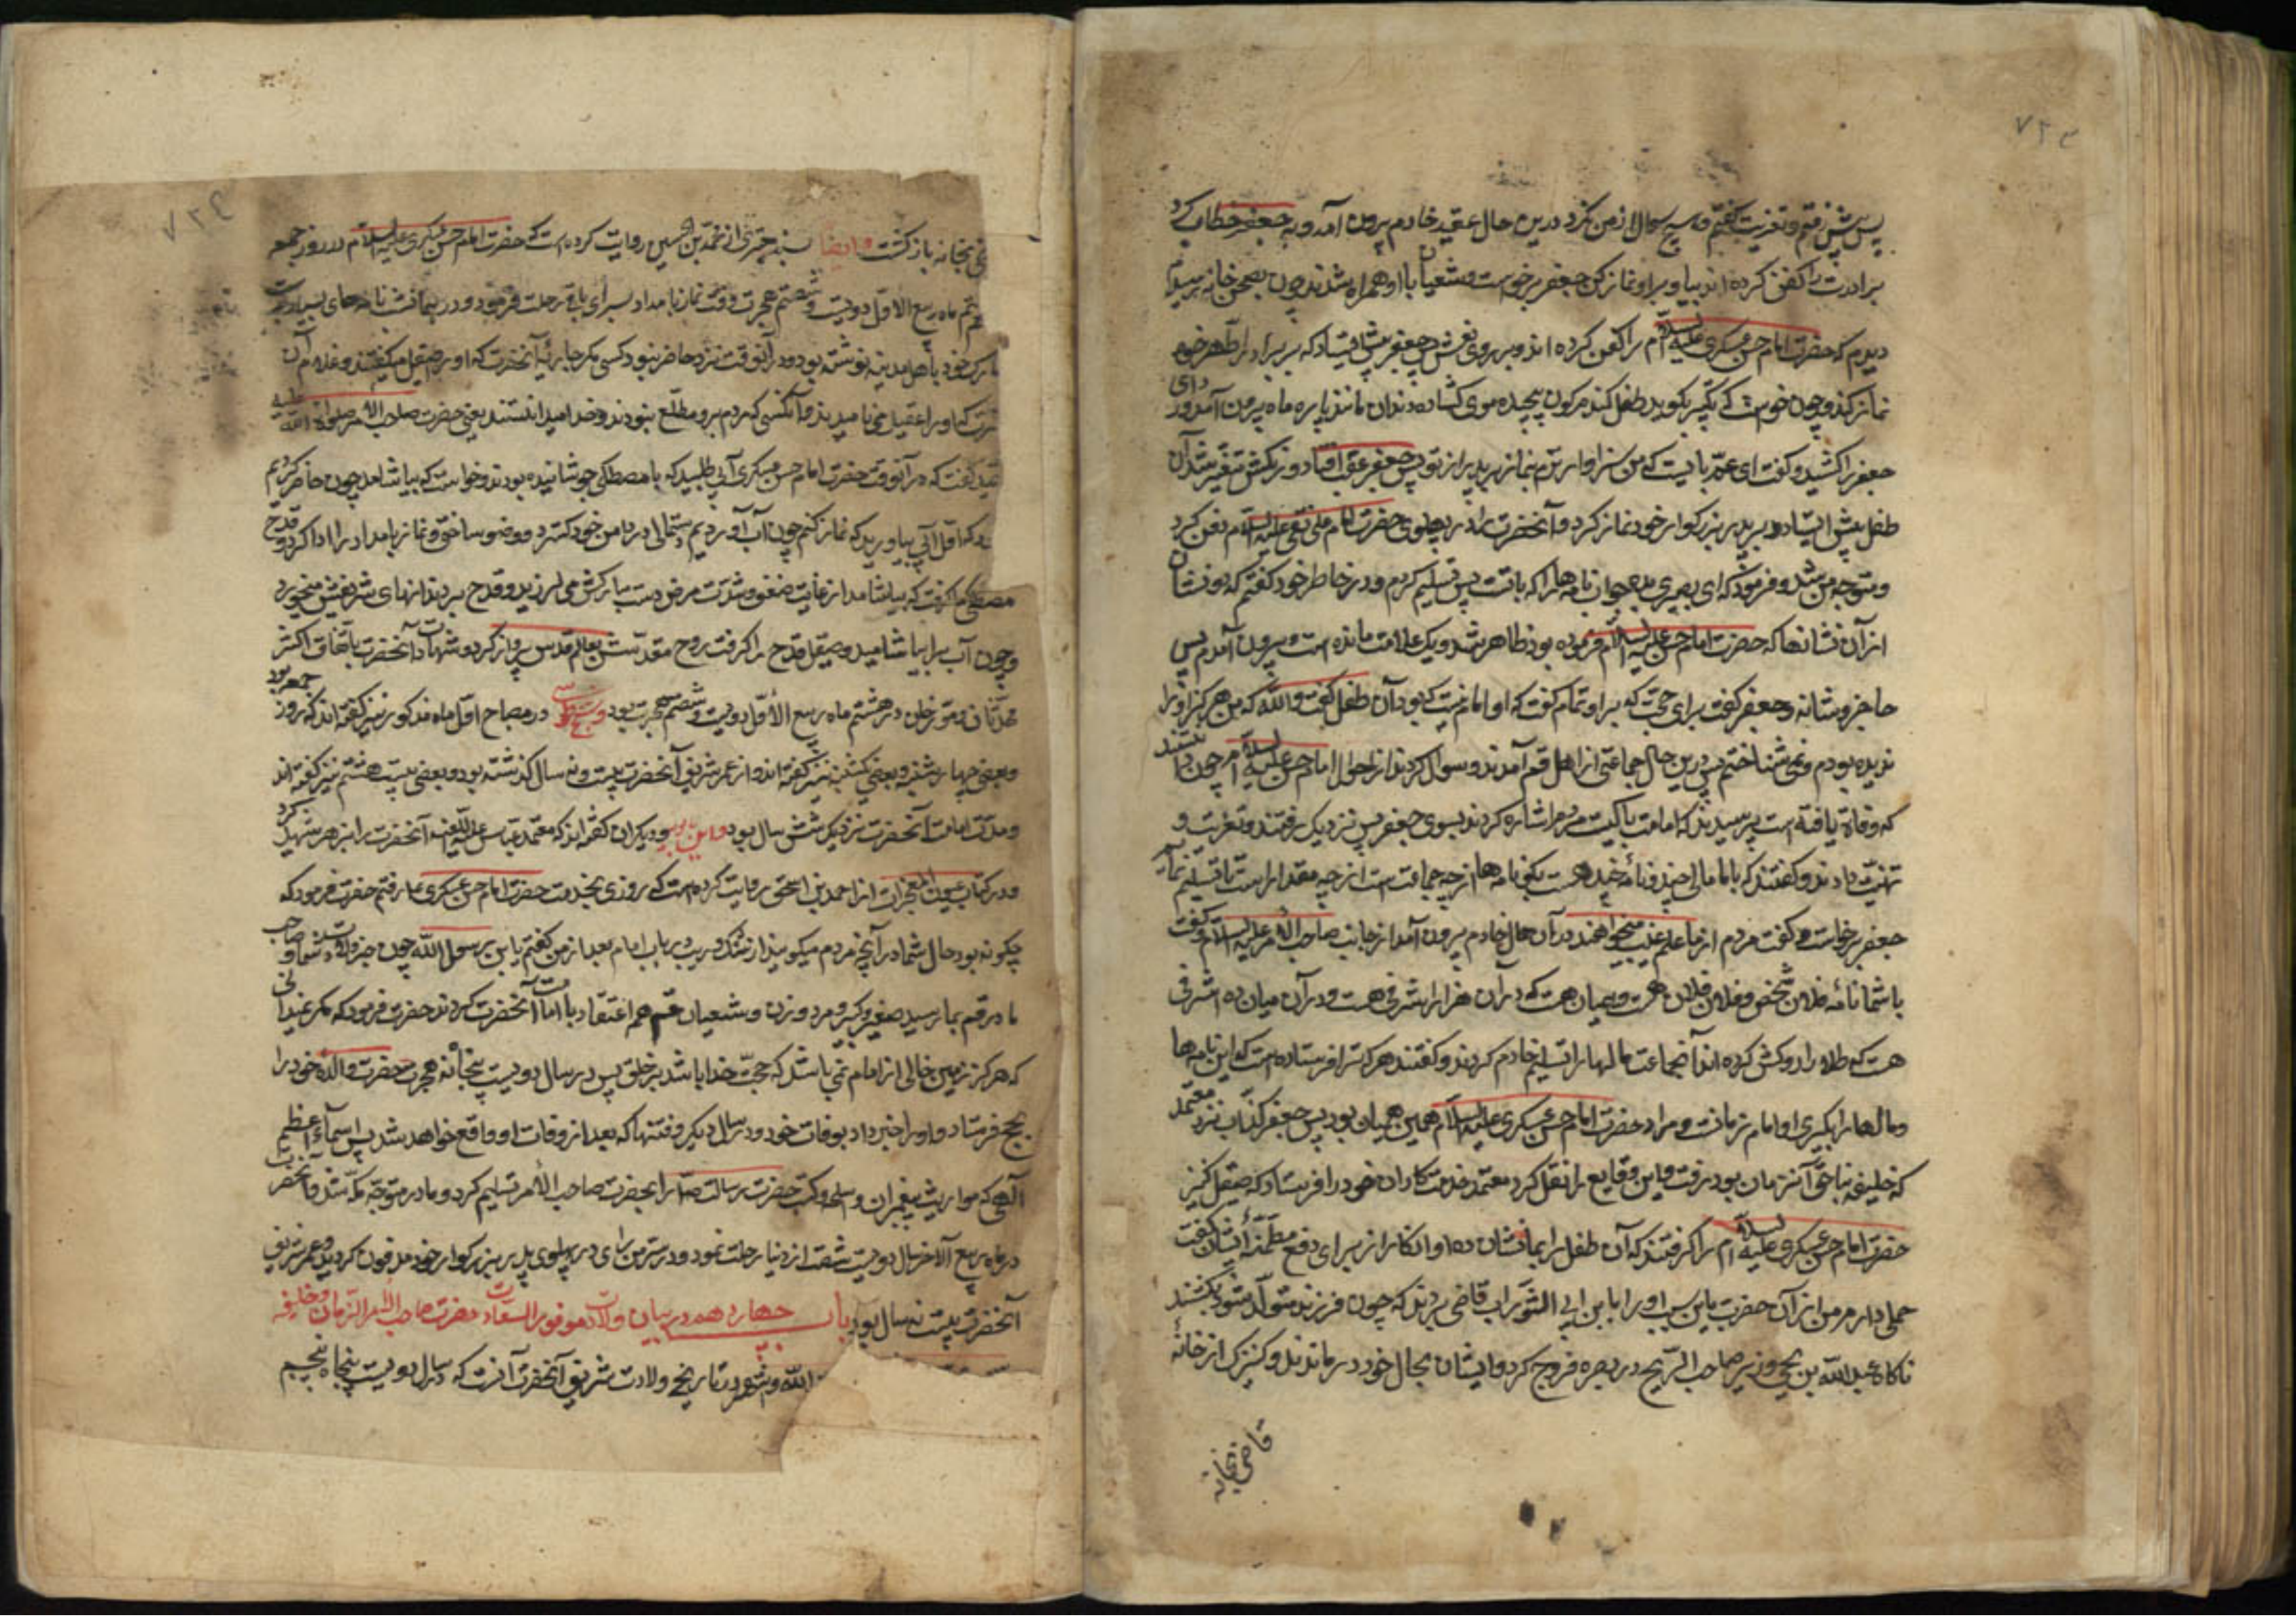 ۷۲۳
پس پیش رفتم و تعزیت گفتم و هیچ سؤال از من نکرد درین حال عقید خادم بیرون آمد و به جعفر خطاب کرد
برادرت را کفن کرده اند بیا و براو نماز کن جعفر برخواست و شعیان با او همراه شدند چون بصحن خانه رسیدم
دیدم که حضرت امام حسن عسکری علیه السلام را کفن کرده اند و بر روی نعش پس جعفر پیش ایستاد که بر برادر اطهر خود
نماز کند و چون خواست که تکبیر بگوید طفلی گندم گون پیچیده موی گشاده دندان مانند پاره ماه بیرون آمد و ردای
جعفر را کشید و گفت ای عم باز پس بایست که من سزاوارترم بنماز بر پدر از تو پس جعفر عقب ایستاد و رنگش متغیر شد آن
طفل پیش ایستاد و بر پدر بزرگوار خود نماز کرد و آنحضرت را در پهلوی حضرت امام علی نقی علیه السلام دفن کرد
و متوجه من شد و فرمود که ای بصری بده جواب نامه ها را که با تست پس تسلیم کردم و در خاطر خود گفتم که دو نشان
از آن نشانها که حضرت امام حسن علیه السلام فرموده بود ظاهر شد و یک علامت مانده است و بیرون آمدم پس
حاجز وشا به جعفر گفت برای حجت که براو تمام کند که او امام نیست که بود آن طفل گفت والله که من هرگز او را
ندیده بودم و نمی شناختم پس درین حال جماعتی از اهل قم آمدند و سوال کردند از احوال امام حسن علیه السلام چون دانستند
که وفات یافته است پرسیدند که امامت با کیست مردم اشاره کردند بسوی جعفر پس نزدیک رفتند و تعزیت و
تهنیت دادند و گفتند که با ما مالی چند و نامهٔ چند هست بگو نامه ها از چه جماعت است و از چه مقدار است تا تسلیم نمائیم
جعفر برخاست و گفت مردم از ما علم غیب میخواهند در آن حال خادم بیرون آمد از جانب صاحب الامر علیه السلام و گفت
با شما نامهٔ فلان شخص و فلان و فلان هست و همیان هست که در آن هزار اشرفی هست و در آن میان ده اشرفی
هست که طلا را روکش کرده اند آنجماعت مالها را تسلیم خادم کردند و گفتند هر که ترا فرستاده است که این نامه ها
و مالها را بگیری او امام زمانست و مراد حضرت امام حسن عسکری علیه السلام همین همیان بود پس جعفر کذاب نزد معتمد
که خلیفه بناحق آنزمان بود رفت و این وقایع را نقل کرد معتمد خدمتکاران خود را فرستاد که صیقل کنیز
حضرت امام حسن عسکری علیه السلام را گرفتند که آن طفل را بما نشان ده او انکار از برای دفع مظنه ایشان گفت
حملی دارم من از آن حضرت باین سبب او را بابن ابی الشوارب قاضی سپردند که چون فرزند متولد شود بکشند
ناگاه عبدالله بن یحیی وزیر صاحب الزنج در بصره خروج کرد و ایشان بحال خود درماندند و کنیزک از خانهٔ
قاضی بخانه
۷۲٤
بخانه بازگشت و ایضا بسند معتبر از محمد بن الحسین روایت کرده است که حضرت امام حسن عسکری علیه السلام در روز جمعه
هشتم ماه ربیع الاول دویست و شصتم هجرت وقت نماز بامداد بسرای باقی رحلت فرمود و در همانشب نامه های بسیار بدست
مبارک خود باهل مدینه نوشته بود و در آنوقت نزد حاضر نبود کسی مگر جاریهٔ آنحضرت که او را صیقل میگفتند و غلام آن
حضرت که او را عقید می نامیدند و آنکسی که مردم برو مطلع نبودند و خدا میدانستند یعنی حضرت صاحب الامر صلوات الله علیه
عقید گفت که در آنوقت حضرت امام حسن عسکری آبی طلبید که با مصطکی جوشانیده بودند و خواست که بیاشامد چون حاضر کردیم
که اول آبی بیاورید که نماز کنم چون آب آوردیم دستمالی در دامن خود گسترد و وضو ساخت و نماز بامداد را ادا کرد و قدح
مصطکی گرفت که بیاشامد از غایت ضعف و شدت مرض دست مبارکش می لرزید و قدح بر دندانهای شریفش میخورد
و چون آب را بیاشامید و صیقل قدح را گرفت روح مقدسش بعالم قدس پرواز کرد و شهادت آنحضرت باتفاق اکثر
محدثان و مورخان در هشتم ماه ربیع الاول دویست و شصتم هجرت بود و شیخ طوسی در مصباح اول ماه مذکور نیز گفته اند که روز جمعه بود
و بعضی چهارشنبه و بعضی یکشنبه نیز گفته اند و از عمر شریف آنحضرت بیست و نه سال گذشته بود و بعضی بیست هشتم نیز گفته اند
و مدت امامت آنحضرت نزدیک شش سال بود و ابن بابویه و دیگران گفته اند که معتمد عباسی علیه اللعنه آنحضرت را بزهر شهید کرد
و در کتاب عیون المعجزات از احمد بن اسحق روایت کرده است که روزی بخدمت حضرت امام حسن عسکری ع رفتم حضرت فرمود که
چگونه بود حال شما در آنچه مردم میگویند از شک و ریب در باب امام بعد از من گفتم یابن رسول الله چون خبر ولادت سید و صاحب
ما در قم بما رسید صغیر و کبیر و مرد و زن و شعیان قم هم اعتقاد بامامت آنحضرت کردند حضرت فرمود که مگر نمیدانی
که هرگز زمین خالی از امام نمی باشد که حجت خدا باشد بر خلق پس در سال دویست پنجاه نه هجرت حضرت والدهٔ خود را
بحج فرستاد و او را خبر داد بوفات خود در سال دیگر و فتنها که بعد از وفات او واقع خواهد شد پس اسماء اعظم
الهی که مواریث پیغمبران و اسلحه و کتب حضرت رسالت ص را بحضرت صاحب الامر تسلیم کرد و مادر متوجه مکه شد و آنحضرت
در ماه ربیع الاخر سال دویست شصت از دنیا رحلت نمود و در سر من رای در پهلوی پدر بزرگوار خود مدفون گردید و عمر شریف
آنحضرت بیست نه سال بود باب چهاردهم در بیان ولادت موفور السعادت حضرت صاحب الامر الزمان و خلیفه
الله و اشهر در تاریخ ولادت شریف آنحضرت آنست که در سال دویست پنجاه پنجم